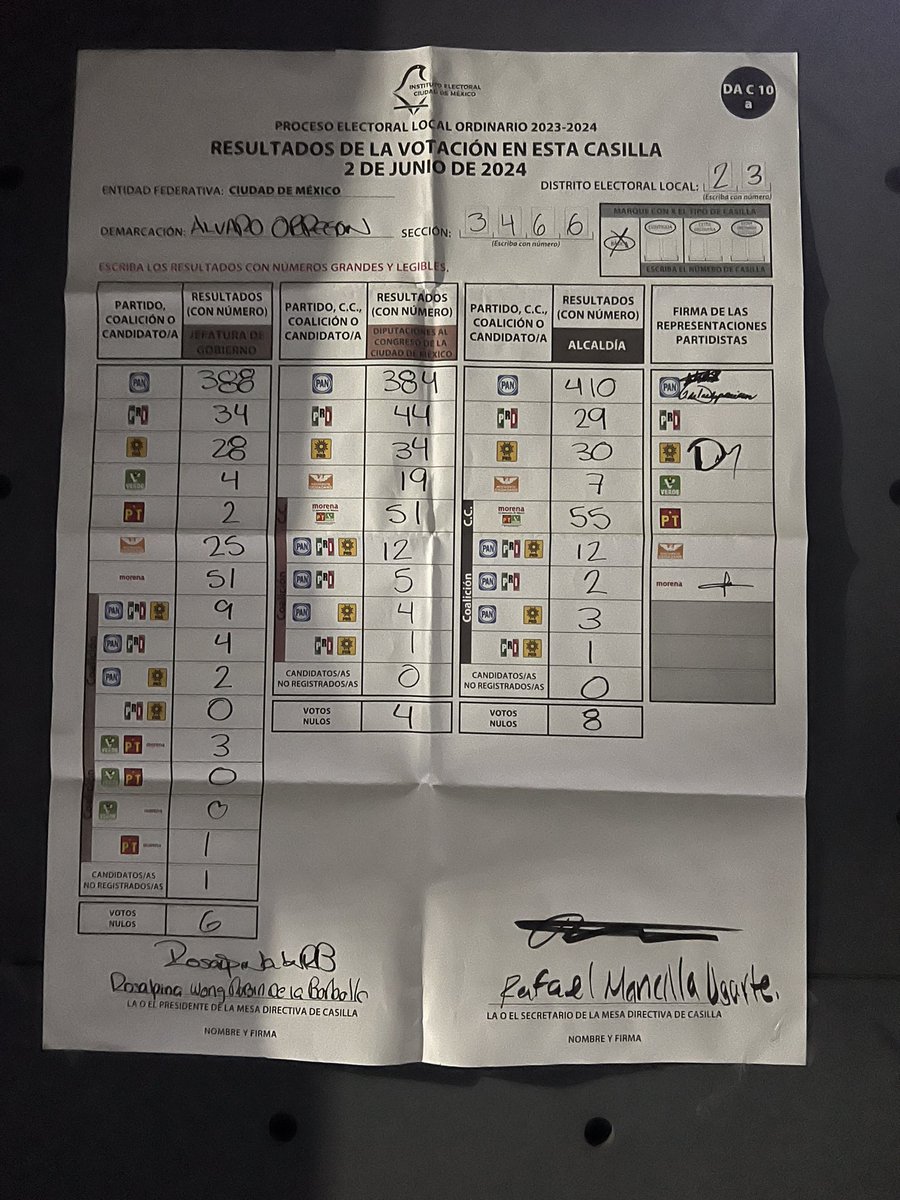 INSTITUTO ELECTORAL
CIUDAD DE MÉXICO
DA C 10
a
PROCESO ELECTORAL LOCAL ORDINARIO 2023-2024
RESULTADOS DE LA VOTACIÓN EN ESTA CASILLA
2 DE JUNIO DE 2024
ENTIDAD FEDERATIVA: CIUDAD DE MÉXICO
DISTRITO ELECTORAL LOCAL: 23
(Escriba con número)
DEMARCACIÓN: ALVARO OBREGON SECCIÓN: 3466
(Escriba con número)
MARQUE CON X EL TIPO DE CASILLA
ESCRIBA EL NÚMERO DE CASILLA
ESCRIBA LOS RESULTADOS CON NÚMEROS GRANDES Y LEGIBLES.
PARTIDO, COALICIÓN O CANDIDATO/A
RESULTADOS (CON NÚMERO)
JEFATURA DE GOBIERNO
PAN 388
PRI 34
PRD 28
VERDE 4
PT 2
25
morena 51
Coalición
PAN PRI PRD 9
PAN PRI 4
PAN PRD 2
PRI PRD 0
VERDE PT morena 3
VERDE PT 0
VERDE morena 0
PT morena 1
CANDIDATOS/AS NO REGISTRADOS/AS 1
VOTOS NULOS 6
PARTIDO, C.C., COALICIÓN O CANDIDATO/A
RESULTADOS (CON NÚMERO)
DIPUTACIONES AL CONGRESO DE LA CIUDAD DE MÉXICO
PAN 384
PRI 44
PRD 34
19
C.C.
morena PT VERDE 51
Coalición
PAN PRI PRD 12
PAN PRI 5
PAN PRD 4
PRI PRD 1
CANDIDATOS/AS NO REGISTRADOS/AS 0
VOTOS NULOS 4
PARTIDO, C.C., COALICIÓN O CANDIDATO/A
RESULTADOS (CON NÚMERO)
ALCALDÍA
PAN 410
PRI 29
PRD 30
7
C.C.
morena PT VERDE 55
Coalición
PAN PRI PRD 12
PAN PRI 2
PAN PRD 3
PRI PRD 1
CANDIDATOS/AS NO REGISTRADOS/AS 0
VOTOS NULOS 8
FIRMA DE LAS REPRESENTACIONES PARTIDISTAS
PAN
PRI
PRD
VERDE
PT
morena
Rosalpina Wong Rubin De la Barbolla
LA O EL PRESIDENTE DE LA MESA DIRECTIVA DE CASILLA
NOMBRE Y FIRMA
Rafael Mancilla Ugarte.
LA O EL SECRETARIO DE LA MESA DIRECTIVA DE CASILLA
NOMBRE Y FIRMA